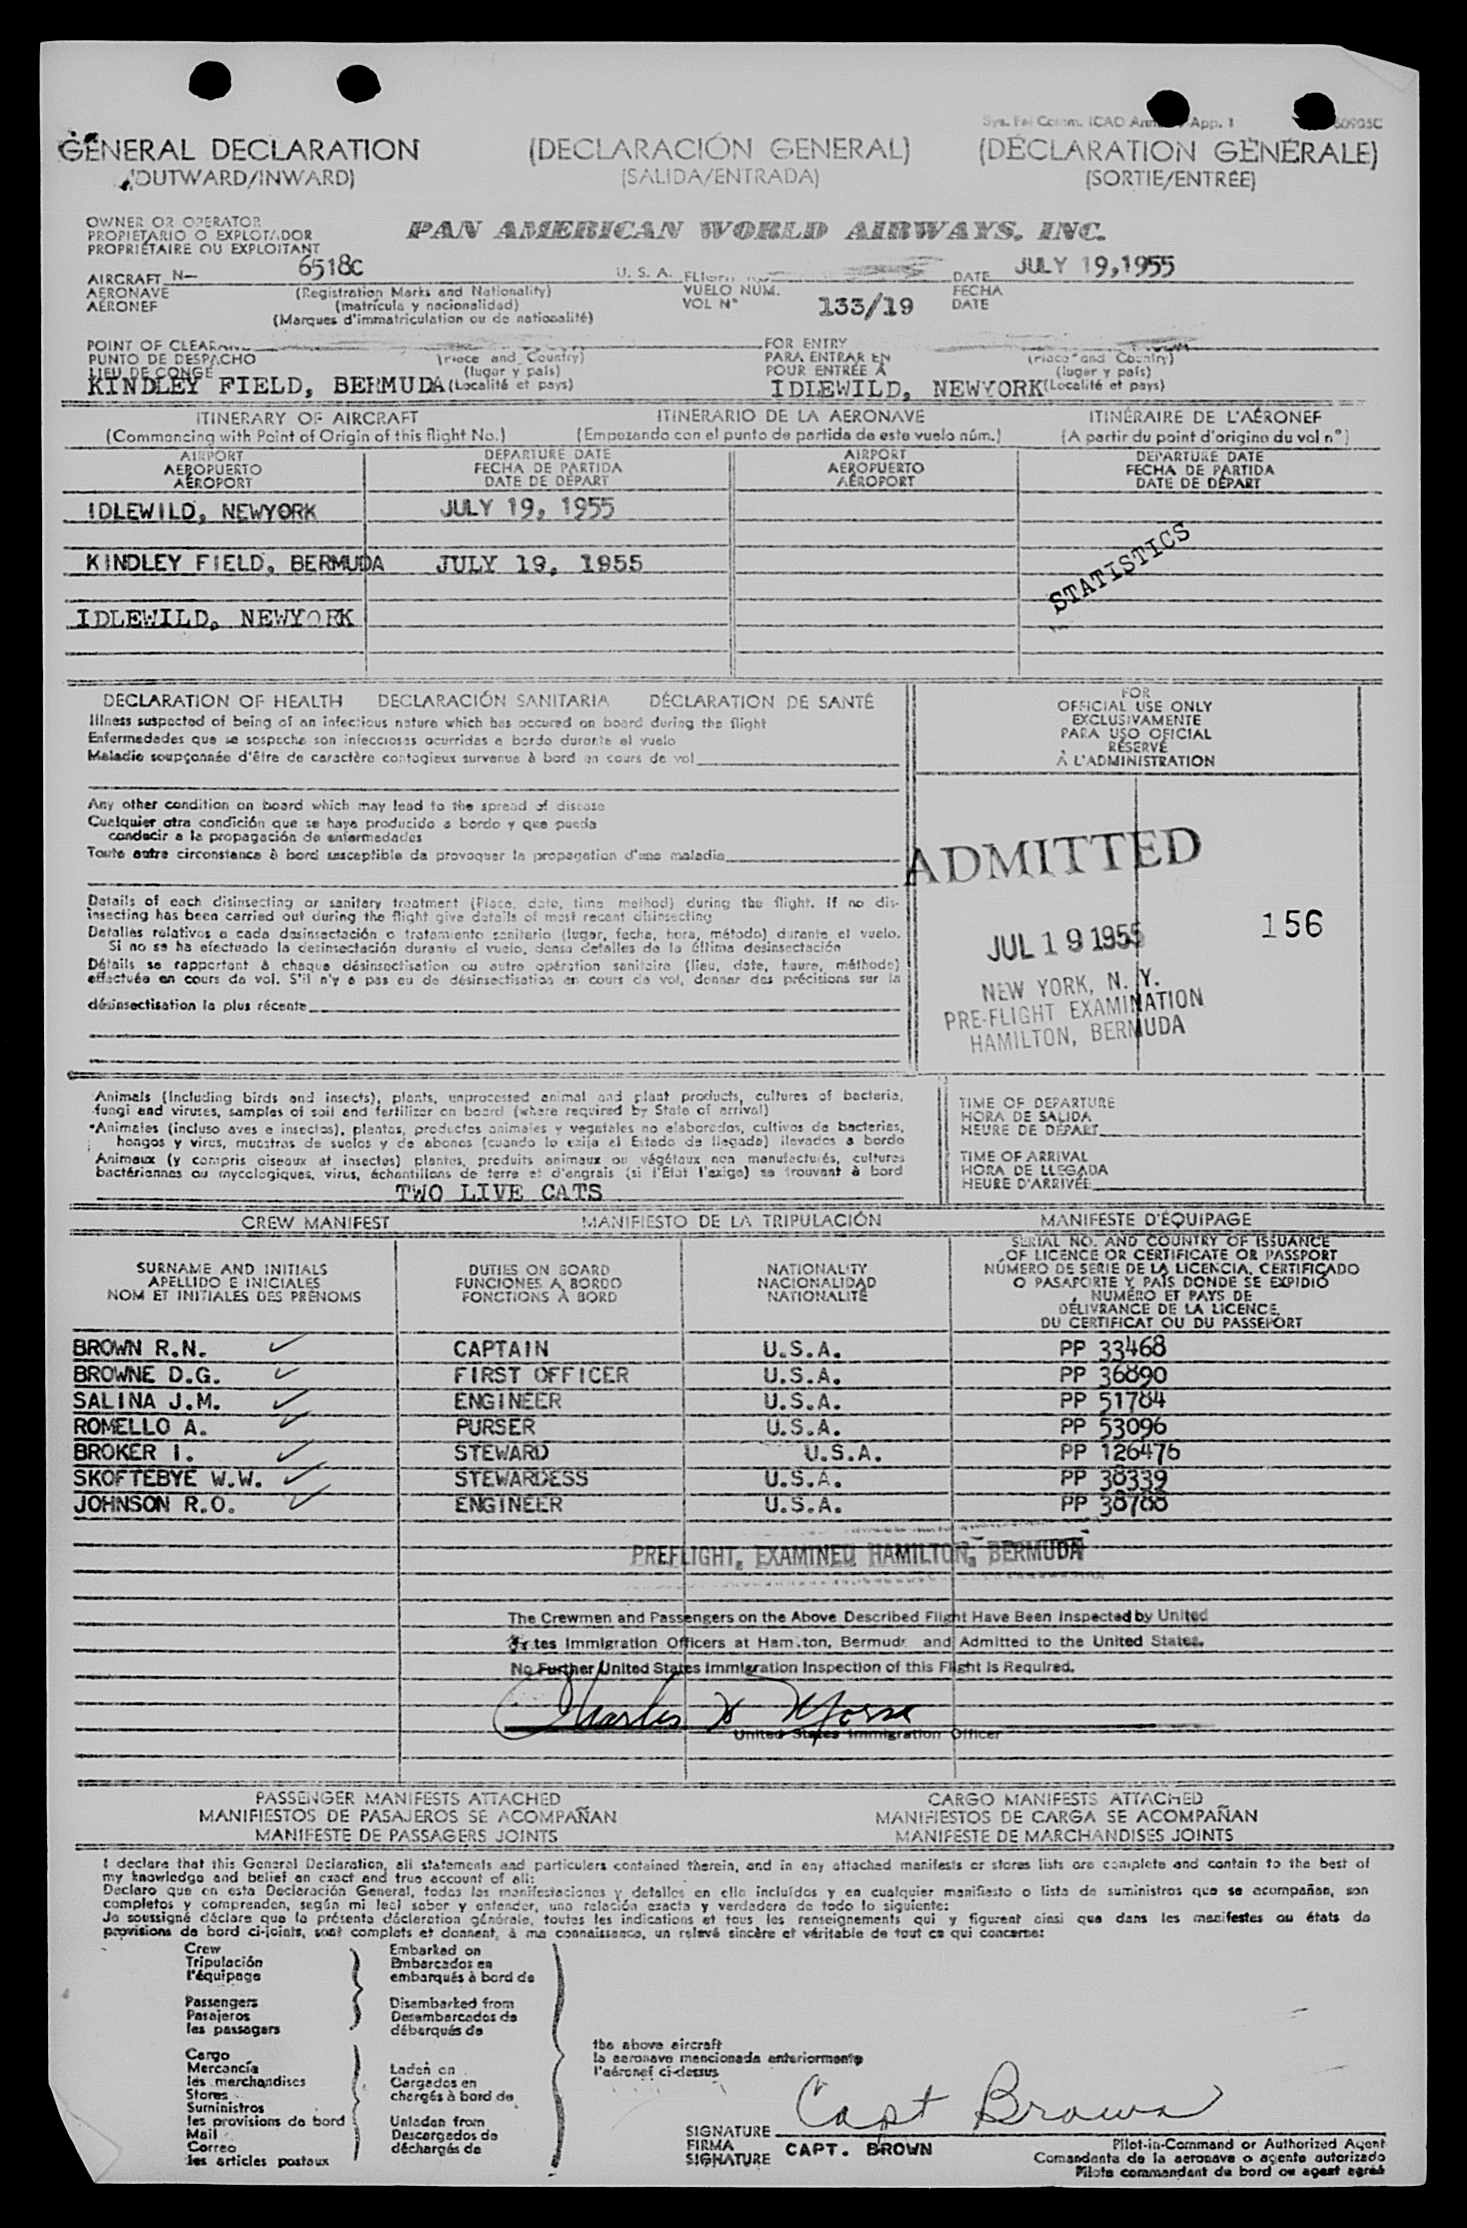 Sys. Fal Comm. ICAO App. 1
GENERAL DECLARATION (DECLARACIÓN GENERAL) (DÉCLARATION GÉNÉRALE)
(OUTWARD/INWARD) (SALIDA/ENTRADA) (SORTIE/ENTRÉE)
OWNER OR OPERATOR
PROPIETARIO O EXPLOTADOR
PROPRIÉTAIRE OU EXPLOITANT
PAN AMERICAN WORLD AIRWAYS, INC.
AIRCRAFT N— 6518C U. S. A. DATE JULY 19,1955
AERONAVE (Registration Marks and Nationality) VUELO NÚM. FECHA
AÉRONEF (matrícula y nacionalidad) VOL N° 133/19 DATE
(Marques d'immatriculation ou de nationalité)
POINT OF FOR ENTRY
PUNTO DE DESPACHO (Place and Country) PARA ENTRAR EN (Place and Country)
LIEU DE CONGÉ (lugar y país) POUR ENTRÉE À (lugar y país)
KINDLEY FIELD, BERMUDA (Localité et pays) IDLEWILD, NEWYORK (Localité et pays)
ITINERARY OF AIRCRAFT ITINERARIO DE LA AERONAVE ITINÉRAIRE DE L'AÉRONEF
(Commencing with Point of Origin of this flight No.) (Empezando con el punto de partida de este vuelo núm.) (A partir du point d'origine du vol n°)
AIRPORT DEPARTURE DATE AIRPORT DEPARTURE DATE
AEROPUERTO FECHA DE PARTIDA AEROPUERTO FECHA DE PARTIDA
AÉROPORT DATE DE DÉPART AÉROPORT DATE DE DÉPART
IDLEWILD, NEWYORK JULY 19, 1955
STATISTICS
KINDLEY FIELD, BERMUDA JULY 19, 1955
IDLEWILD, NEWYORK
DECLARATION OF HEALTH DECLARACIÓN SANITARIA DÉCLARATION DE SANTÉ
Illness suspected of being of an infectious nature which has occured on board during the flight
Enfermedades que se sospecha son infecciosas ocurridas a bordo durante el vuelo
Maladie soupçonnée d'être de caractère contagieux survenue à bord en cours de vol
Any other condition on board which may lead to the spread of disease
Cualquier otra condición que se haya producido a bordo y que pueda
conducir a la propagación de enfermedades
Toute autre circonstance à bord susceptible de provoquer la propagation d'une maladie
Details of each disinsecting or sanitary treatment (Place, date, time method) during the flight. If no dis-
insecting has been carried out during the flight give details of most recent disinsecting
Detalles relativos a cada desinsectación o tratamiento sanitario (lugar, fecha, hora, método) durante el vuelo.
Si no se ha efectuado la desinsectación durante el vuelo, dense detalles de la última desinsectación
Détails se rapportant à chaque désinsectisation ou autre opération sanitaire (lieu, date, heure, méthode)
effectuée en cours de vol. S'il n'y a pas eu de désinsectisation en cours de vol, donner des précisions sur la
désinsectisation la plus récente
FOR
OFFICIAL USE ONLY
EXCLUSIVAMENTE
PARA USO OFICIAL
RÉSERVÉ
À L'ADMINISTRATION
ADMITTED
JUL 19 1955
156
NEW YORK, N. Y.
PRE-FLIGHT EXAMINATION
HAMILTON, BERMUDA
Animals (Including birds and insects), plants, unprocessed animal and plant products, cultures of bacteria,
fungi and viruses, samples of soil and fertilizer on board (where required by State of arrival)
Animales (incluso aves e insectos), plantas, productos animales y vegetales no elaborados, cultivos de bacterias,
hongos y virus, muestras de suelos y de abonos (cuando lo exija el Estado de llegada) llevados a bordo
Animaux (y compris oiseaux et insectes) plantes, produits animaux ou végétaux non manufacturés, cultures
bactériennes ou mycologiques, virus, échantillons de terre et d'engrais (si l'État l'exige) se trouvant à bord
TWO LIVE CATS
TIME OF DEPARTURE
HORA DE SALIDA
HEURE DE DÉPART
TIME OF ARRIVAL
HORA DE LLEGADA
HEURE D'ARRIVÉE
CREW MANIFEST MANIFIESTO DE LA TRIPULACIÓN MANIFESTE D'ÉQUIPAGE
SURNAME AND INITIALS
APELLIDO E INICIALES
NOM ET INITIALES DES PRÉNOMS
DUTIES ON BOARD
FUNCIONES A BORDO
FONCTIONS À BORD
NATIONALITY
NACIONALIDAD
NATIONALITÉ
SERIAL NO. AND COUNTRY OF ISSUANCE
OF LICENCE OR CERTIFICATE OR PASSPORT
NÚMERO DE SERIE DE LA LICENCIA, CERTIFICADO
O PASAPORTE Y PAÍS DONDE SE EXPIDIÓ
NUMÉRO ET PAYS DE
DÉLIVRANCE DE LA LICENCE,
DU CERTIFICAT OU DU PASSEPORT
BROWN R.N. CAPTAIN U.S.A. PP 33468
BROWNE D.G. FIRST OFFICER U.S.A. PP 36890
SALINA J.M. ENGINEER U.S.A. PP 51784
ROMELLO A. PURSER U.S.A. PP 53096
BROKER I. STEWARD U.S.A. PP 126476
SKOFTEBYE W.W. STEWARDESS U.S.A. PP 38339
JOHNSON R.O. ENGINEER U.S.A. PP 38788
PREFLIGHT, EXAMINED HAMILTON, BERMUDA
The Crewmen and Passengers on the Above Described Flight Have Been Inspected by United
States Immigration Officers at Hamilton, Bermuda and Admitted to the United States.
No Further United States Immigration Inspection of this Flight is Required.
Charles W Morse
United States Immigration Officer
PASSENGER MANIFESTS ATTACHED CARGO MANIFESTS ATTACHED
MANIFIESTOS DE PASAJEROS SE ACOMPAÑAN MANIFIESTOS DE CARGA SE ACOMPAÑAN
MANIFESTE DE PASSAGERS JOINTS MANIFESTE DE MARCHANDISES JOINTS
I declare that this General Declaration, all statements and particulers contained therein, and in any attached manifests or stores lists are complete and contain to the best of
my knowledge and belief an exact and true account of all:
Declaro que en esta Declaración General, todas las manifestaciones y detalles en ella incluídos y en cualquier manifiesto o lista de suministros que se acompañan, son
completos y comprenden, según mi leal saber y entender, una relación exacta y verdadera de todo lo siguiente:
Je soussigné déclare que la présente déclaration générale, toutes les indications et tous les renseignements qui y figurent ainsi que dans les manifestes ou états de
provisions de bord ci-joints, sont complets et donnent, à ma connaissance, un relevé sincère et véritable de tout ce qui concerne:
Crew Embarked on
Tripulación Embarcados en
l'équipage embarqués à bord de
Passengers Disembarked from
Pasajeros Desembarcados de
les passagers débarqués de
the above aircraft
la aeronave mencionada anteriormente
l'aéronef ci-dessus
Cargo
Mercancía Laden on
les marchandises Cargados en
Stores chargés à bord de
Suministros
les provisions de bord Unladen from
Mail Descargados de
Correo déchargés de
les articles postaux
Capt Brown
SIGNATURE
FIRMA CAPT. BROWN
SIGNATURE
Pilot-in-Command or Authorized Agent
Comandante de la aeronave o agente autorizado
Pilote commandant de bord ou agent agréé